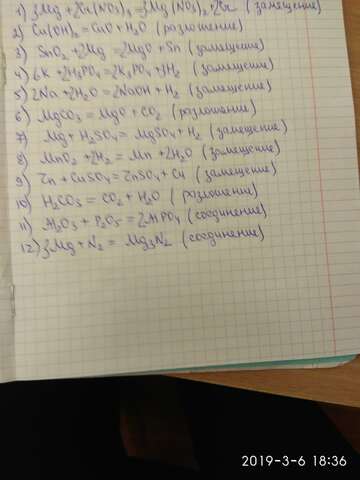 1) 3Mg + 2Cr(NO3)3 = 3Mg(NO3)2 + 2Cr (замещение)
2) Cu(OH)2 = CuO + H2O (разложение)
3) SnO2 + 2Mg = 2MgO + Sn (замещение)
4) 6K + 2H3PO4 = 2K3PO4 + 3H2 (замещение)
5) 2Na + 2H2O = 2NaOH + H2 (замещение)
6) MgCO3 = MgO + CO2 (разложение)
7) Mg + H2SO4 = MgSO4 + H2 (замещение)
8) MnO2 + 2H2 = Mn + 2H2O (замещение)
9) Zn + CuSO4 = ZnSO4 + Cu (замещение)
10) H2CO3 = CO2 + H2O (разложение)
11) Al2O3 + P2O5 = 2AlPO4 (соединение)
12) 3Mg + N2 = Mg3N2 (соединение)
2019-3-6 18:36